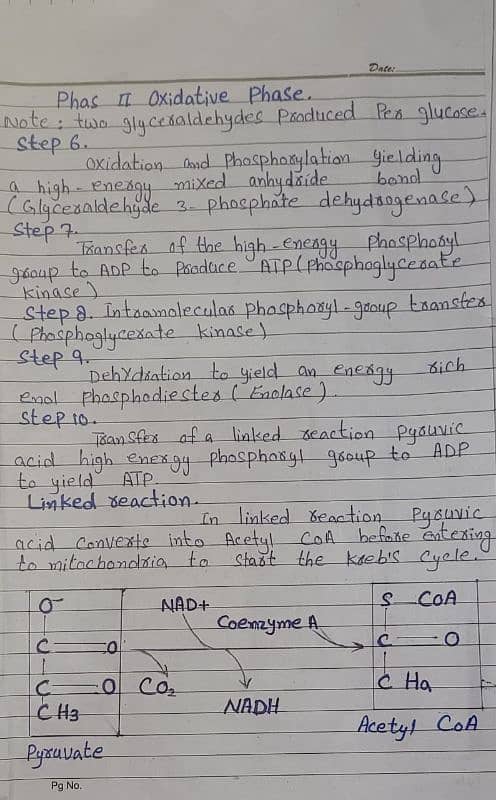 Date:
Phas II Oxidative Phase.
Note: two glyceraldehydes Produced Per glucose.
Step 6.
Oxidation and Phosphorylation yielding
a high-energy mixed anhydride bond
(Glyceraldehyde 3- phosphate dehydrogenase)
Step 7.
Transfer of the high-energy Phosphoryl
group to ADP to Produce ATP (Phosphoglycerate
kinase)
Step 8. Intramolecular phosphoryl-group transfer
(Phosphoglycerate kinase)
Step 9.
DehYdration to yield an energy rich
enol Phosphodiester (Enolase).
Step 10.
Transfer of a linked reaction pyruvic
acid high energy phosphoryl group to ADP
to yield ATP.
Linked reaction.
In linked reaction Pyruvic
acid Converts into Acetyl CoA before entering
to mitochondria to start the kreb's Cycle.
O-
C O
C O
C H3
Pyruvate
NAD+
Coenzyme A
CO2
NADH
S CoA
C O
C Ha
Acetyl CoA
Pg No.